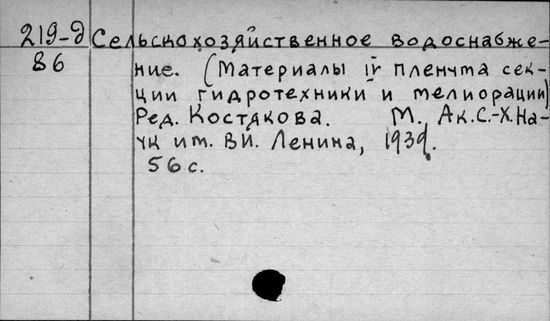 219-д Сельскохозяйственное водоснабже-
86 ние. (Материалы IV пленума сек-
ции гидротехники и мелиорации)
Ред. Костякова. М., Ак. С.-Х. На-
ук им. В.И. Ленина, 1939.
56 с.